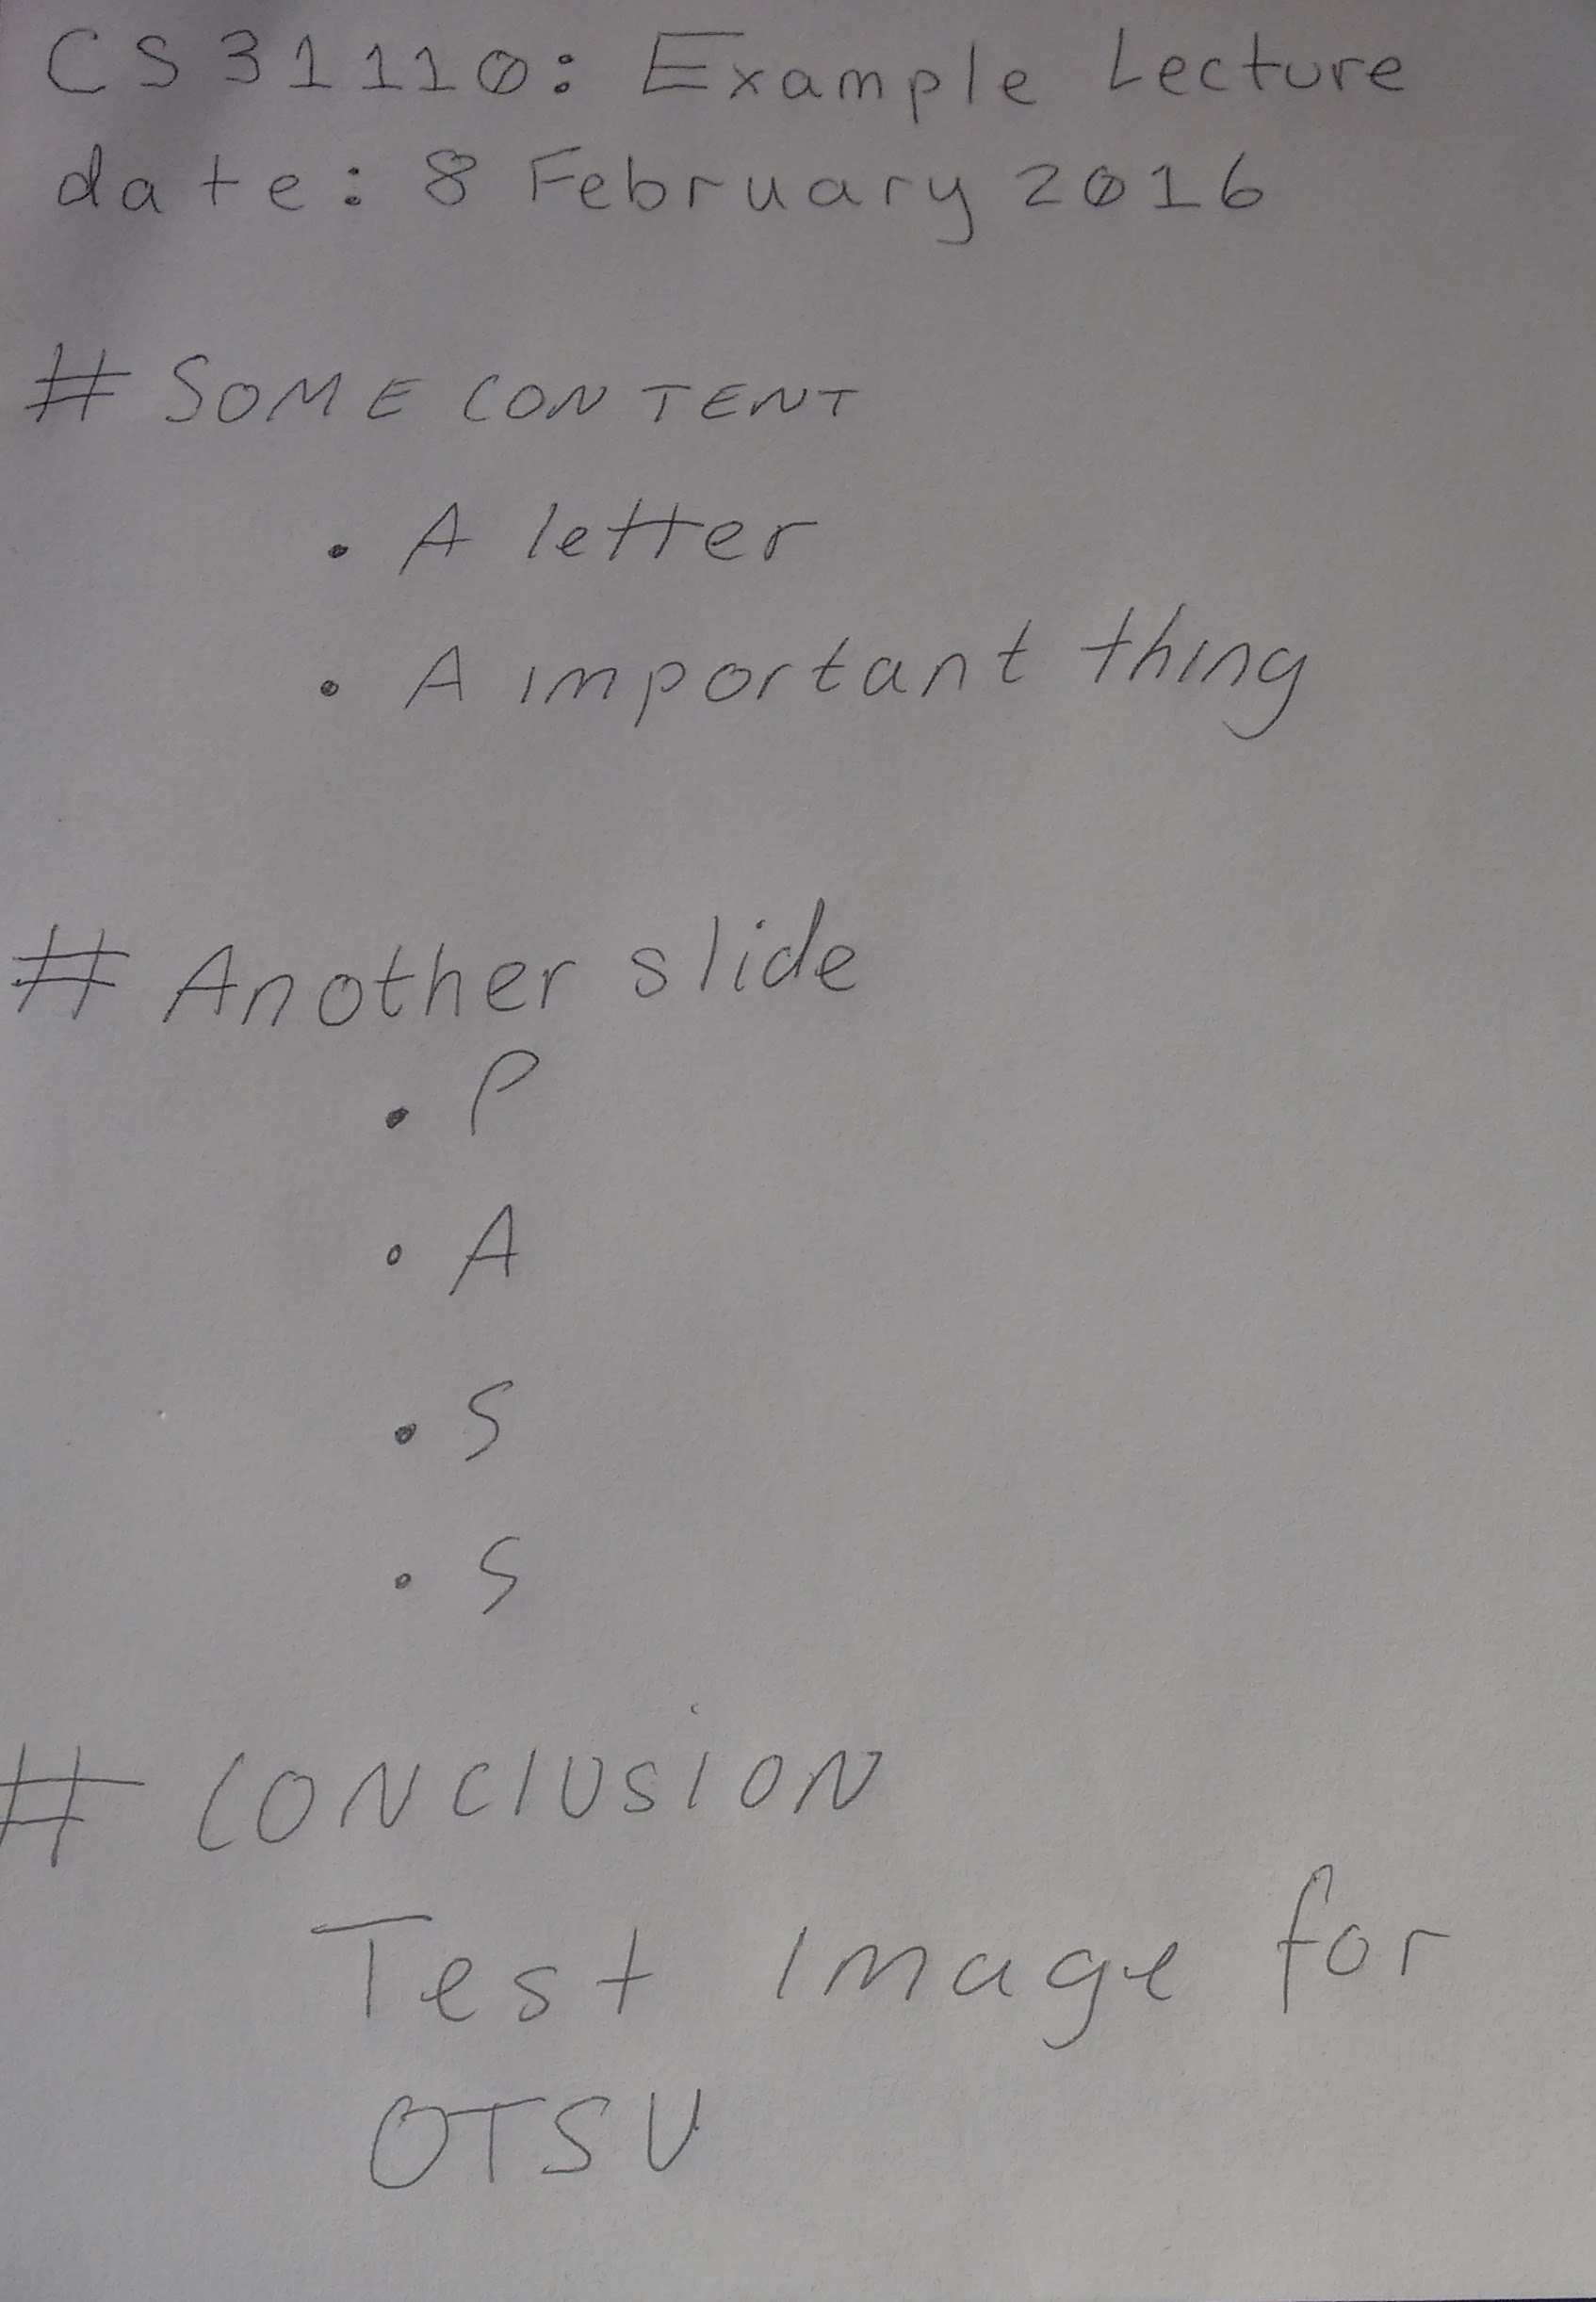 CS31110: Example Lecture
date: 8 February 2016
# SOME CONTENT
• A letter
• A important thing
# Another slide
• P
• A
• S
• S
# CONCLUSION
Test Image for
OTSU